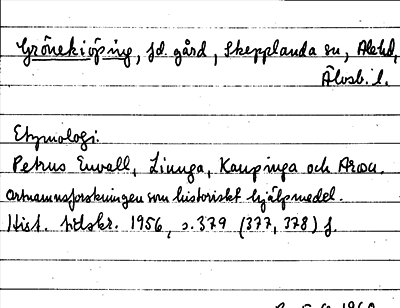 Gröneköping, fd. gård, Skepplanda sn, Ale hd,
Älvsb. l.
Etymologi.
Petrus Envall, Linnga, Kaupinga och Arou.
Ortnamnsforskningen som historiskt hjälpmedel.
Hist. tidskr. 1956, s. 379 (377, 378) f.